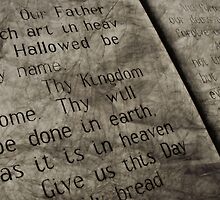 Our Father
ch art in heav
Hallowed be
y name.
Thy Kingdom
ome. Thy will
be done in earth,
as it is in heaven
Give us this Day
bread